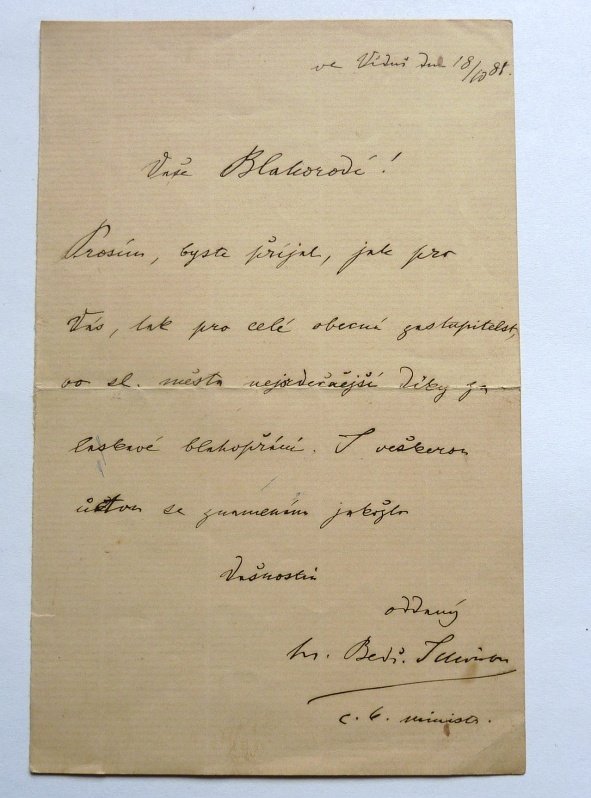 ve Vídni dne 18/10 88.
Vaše Blahorodí!
Prosím, byste přijal, jak pro
Vás, tak pro celé obecné zastupitelst,
vo sl. města nejsrdečnější díky za
laskavé blahopřání. S veškerou
úctou se znamenám jakožto
Vašnostin
oddaný
hr. Bedř. Schönborn
c. k. ministr.